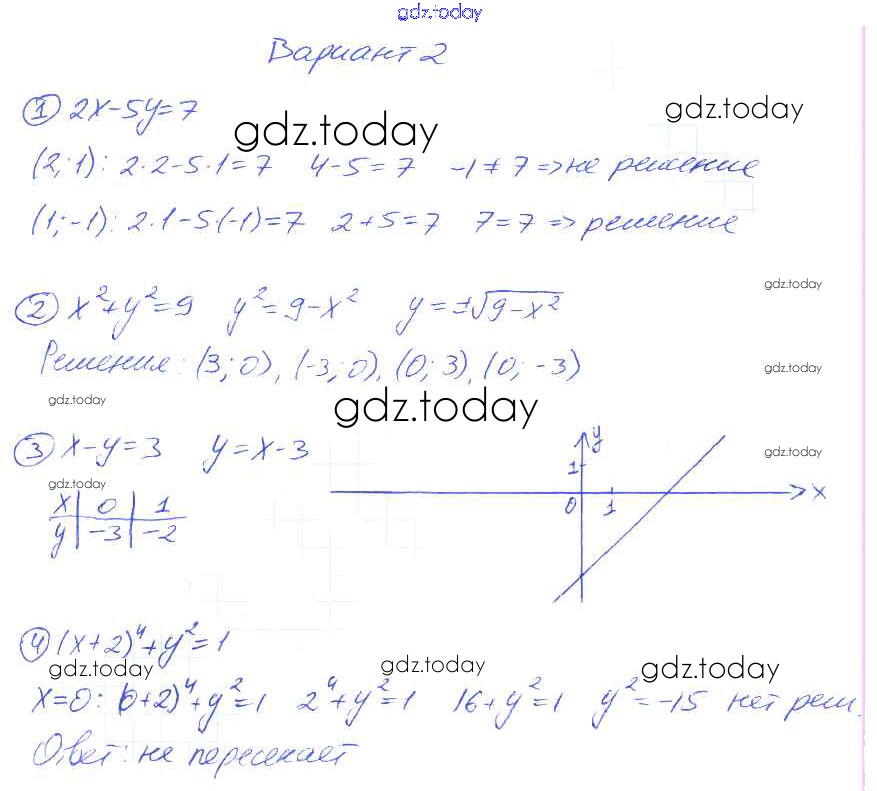 gdz.today
Вариант 2
① 2x-5y=7
gdz.today gdz.today
(2; 1): 2·2-5·1=7 4-5=7 -1≠7 => не решение
(1; -1): 2·1-5(-1)=7 2+5=7 7=7 => решение
gdz.today
② x²+y²=9 y²=9-x² y=±√(9-x²)
Решения: (3; 0), (-3; 0), (0; 3), (0; -3)
gdz.today
gdz.today gdz.today
③ x-y=3 y=x-3
gdz.today
gdz.today
x 0 1
y -3 -2
y
1
0 1 x
④ (x+2)⁴+y²=1
gdz.today gdz.today gdz.today
x=0: (0+2)⁴+y²=1 2⁴+y²=1 16+y²=1 y²=-15 нет реш.
Ответ: не пересекает